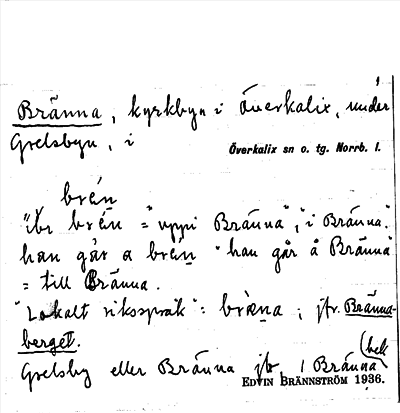 Bränna, kyrkbyn i Överkalix, under
Grelsbyn, i
Överkalix sn o. tg. Norrb. l.
brén
"ibr brén = "uppi Bränna", "i Bränna."
han går a brén "han går å Bränna"
= till Bränna.
"Lokalt riksspråk": bræna; jfr. Bränna-
berget.
Grelsby eller Bränna jfr
Bränna
EDVIN BRÄNNSTRÖM 1936.